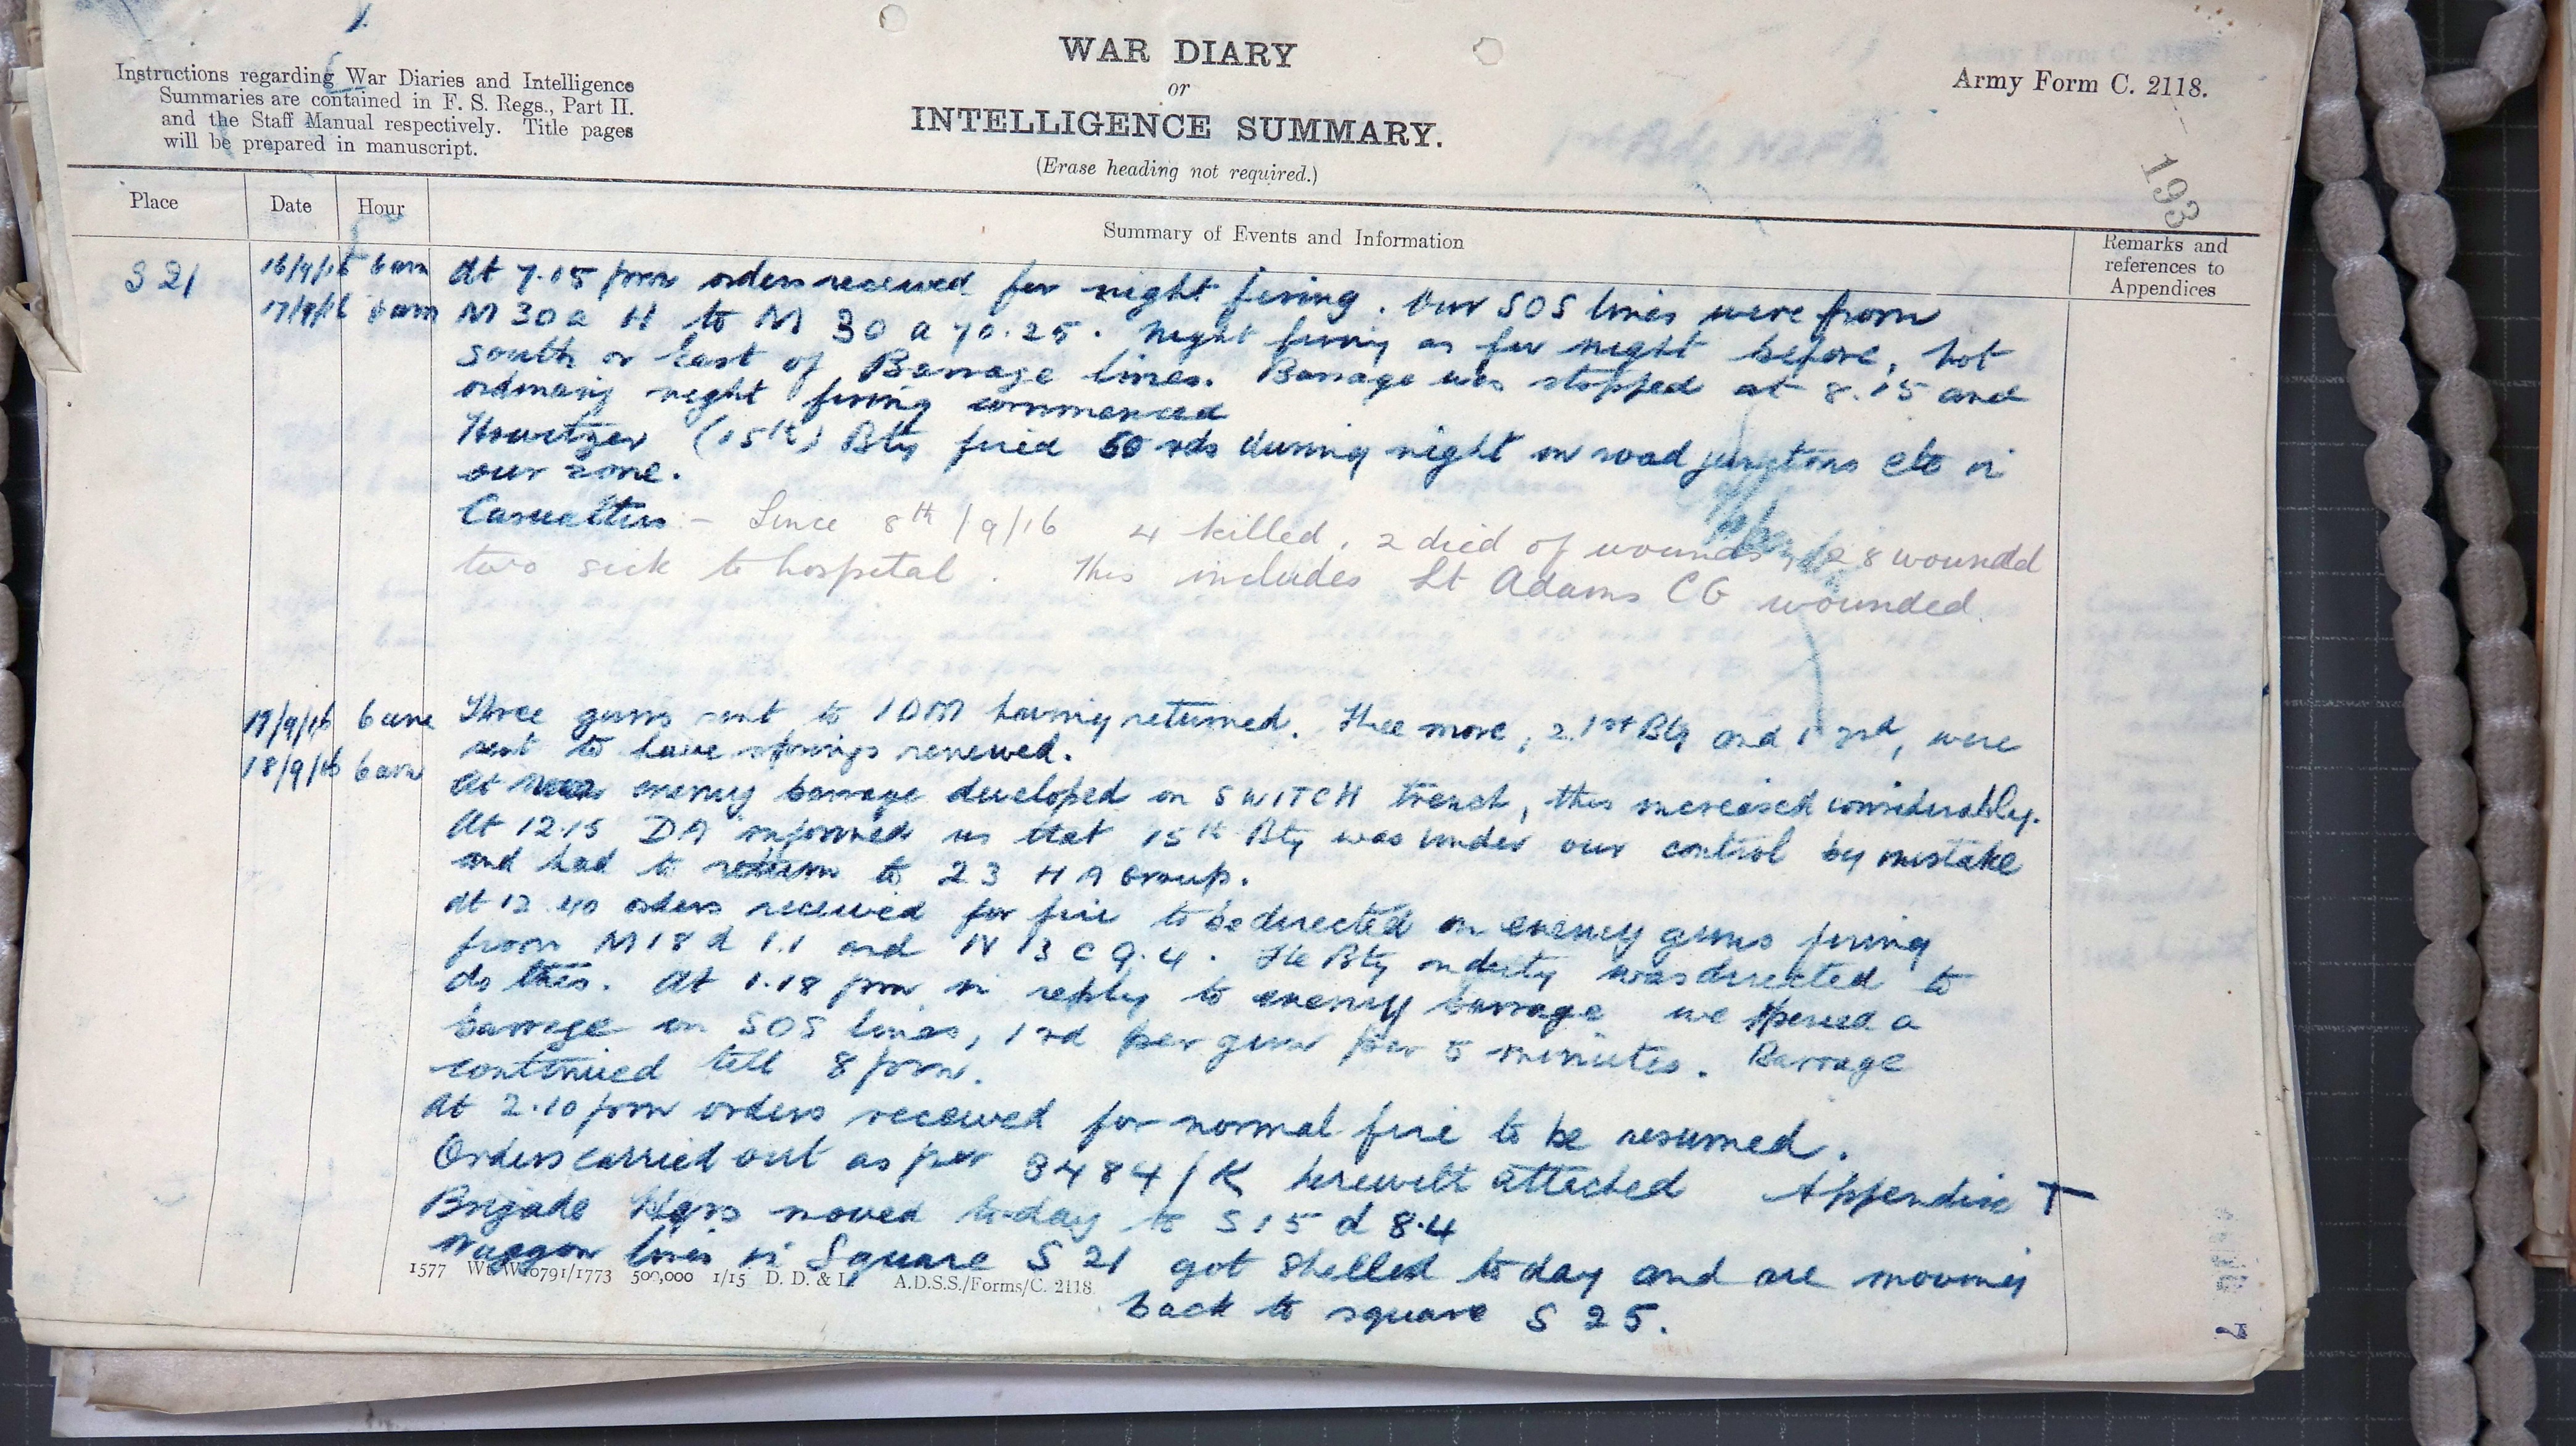 Instructions regarding War Diaries and Intelligence
Summaries are contained in F. S. Regs., Part II.
and the Staff Manual respectively. Title pages
will be prepared in manuscript.
WAR DIARY
or
INTELLIGENCE SUMMARY.
(Erase heading not required.)
Army Form C. 2118.
193
Place
Date
Hour
Summary of Events and Information
Remarks and
references to
Appendices
S 21
16/9/16 6 am At 7.15 pm orders received for night firing. Our SOS lines were from
17/9/16 6 am M 30 a H to M 30 a 70.25. Night firing as for night before, not
south or East of Barrage lines. Barrage was stopped at 8.15 and
ordinary night firing commenced
Howitzer (15th) Bty fired 50 rds during night on road junctions etc in
our zone.
Casualties :- Since 8th /9/16 4 killed, 2 died of wounds, 28 wounded
two sick to hospital. This includes Lt Adams CG wounded.
17/9/16 6 am Three guns sent to IOM having returned. Three more, 2 1st Bty and 1 3rd, were
sent to have springs renewed.
18/9/16 6 am At enemy barrage developed on SWITCH trench, this increased considerably.
At 12.15 DA informed us that 15th Bty was under our control by mistake
and had to return to 23 H A Group.
At 12.40 orders received for fire to be directed on enemy guns firing
from M18 d 1.1 and N 13 c 9.4. The Bty on duty was directed to
do this. At 1.18 pm in reply to enemy barrage we opened a
barrage on SOS lines, 1 rd per gun per 5 minutes. Barrage
continued till 8 pm.
At 2.10 pm orders received for normal fire to be resumed.
Orders carried out as per 8484/K herewith attached Appendix T
Brigade Hqrs moved to-day to S 15 d 8.4
Waggon lines in Square S 21 got shelled to day and are moving
back to square S 25.
1577 Wt. W10791/1773 500,000 1/15 D. D. & L. A.D.S.S./Forms/C. 2118.